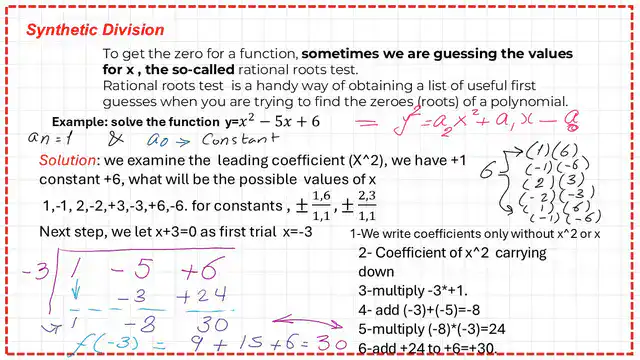 Synthetic Division
To get the zero for a function, sometimes we are guessing the values
for x , the so-called rational roots test.
Rational roots test is a handy way of obtaining a list of useful first
guesses when you are trying to find the zeroes (roots) of a polynomial.
Example: solve the function y=x² − 5x + 6
= y²=a₂x²+a₁x − a₀
an=1 & a₀ → Constant
Solution: we examine the leading coefficient (X^2), we have +1
constant +6, what will be the possible values of x
1,-1, 2,-2,+3,-3,+6,-6. for constants , ± 1,6/1,1 , ± 2,3/1,1
Next step, we let x+3=0 as first trial x=-3
6 { (1)(6)
(-1)(-6)
(2)(3)
(-2)(-3)
(1)(6)
(-1)(-6)
-3 | 1 -5 +6
-3 +24
1 -8 30
f(-3) = 9 + 15 + 6 = 30
1-We write coefficients only without x^2 or x
2- Coefficient of x^2 carrying
down
3-multiply -3*+1.
4- add (-3)+(-5)=-8
5-multiply (-8)*(-3)=24
6-add +24 to +6=+30.